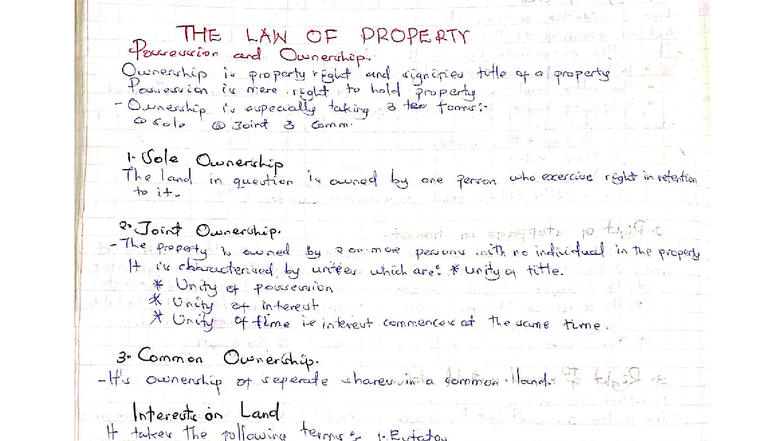 THE LAW OF PROPERTY
Possession and Ownership.
Ownership is property right and signifies title of a property
Possession is mere right to hold property
- Ownership is especially taking 3 forms:-
① Sole ② Joint 3 Comm.
1. Sole Ownership
The land in question is owned by one person who excercive right in retention
to it.
2. Joint Ownership.
- The property is owned by 2 or more persons with no individual in the property
It is characterised by unitees which are: * Unity of title.
* Unity of possession
* Unity of interest
* Unity of time i.e interest commences at the same time.
3. Common Ownership.
- It's ownership of seperate shares in a common land.
Interests on Land
It takes the following terms: